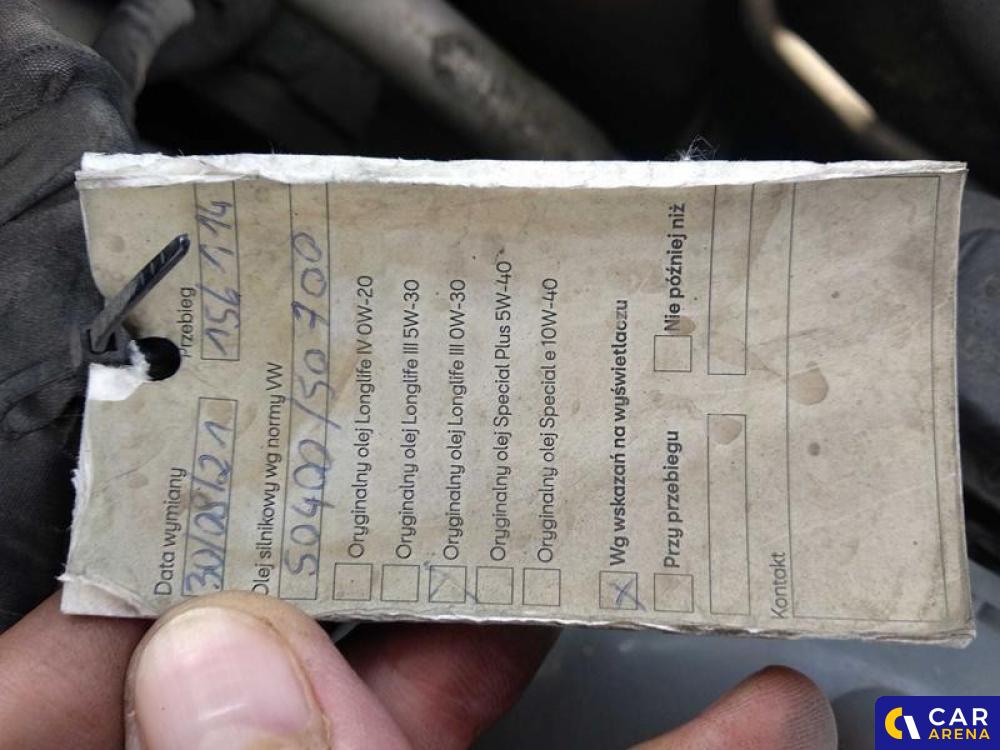 Data wymiany
Przebieg
30/08/21
156114
Olej silnikowy wg normy VW
50400/50700
Oryginalny olej Longlife IV 0W-20
Oryginalny olej Longlife III 5W-30
Oryginalny olej Longlife III 0W-30
Oryginalny olej Special Plus 5W-40
Oryginalny olej Special e 10W-40
X Wg wskazań na wyświetlaczu
Przy przebiegu
Nie później niż
Kontakt
CAR
ARENA